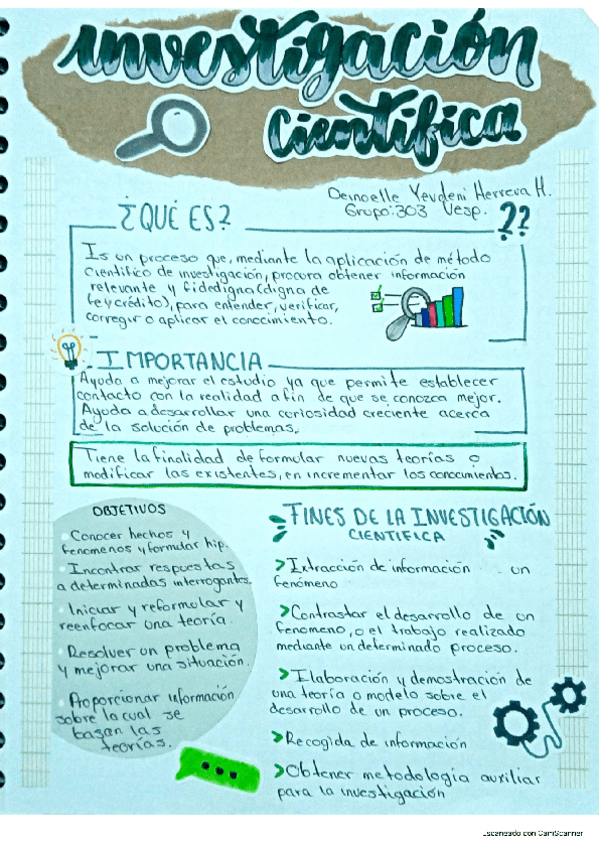 investigación
científica
Deinoelle Yevdeni Herrera H.
Grupo:303 Vesp.
¿QUÉ ES?
??
Is un proceso que, mediante la aplicación de método
científico de investigación, procura obtener información
relevante y fidedigna (digna de
fe y crédito), para entender, verificar,
corregir o aplicar el conocimiento.
IMPORTANCIA
Ayuda a mejorar el estudio ya que permite establecer
contacto con la realidad a fin de que se conozca mejor.
Ayuda a desarrollar una curiosidad creciente acerca
de la solución de problemas.
Tiene la finalidad de formular nuevas teorías o
modificar las existentes, en incrementar los conocimientos.
OBJETIVOS
Conocer hechos y
fenomenos y formular hip.
Incontrar respuestas
a determinadas interrogantes.
Iniciar y reformular y
reenfocar una teoría.
Resolver un problema
y mejorar una situación.
Proporcionar información
sobre la cual se
basan las
teorías.
FINES DE LA INVESTIGACIÓN
CIENTIFICA
>Extracción de información un
fenómeno
>Contrastar el desarrollo de un
fenomeno, o el trabajo realizado
mediante un determinado proceso.
>Elaboración y demostración de
una teoría o modelo sobre el
desarrollo de un proceso.
>Recogida de información
>Obtener metodología auxiliar
para la investigación
Escaneado con CamScanner